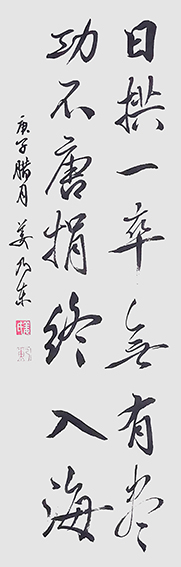 日拱一卒無有盡
功不唐捐終入海
庚子腊月 姜乃东